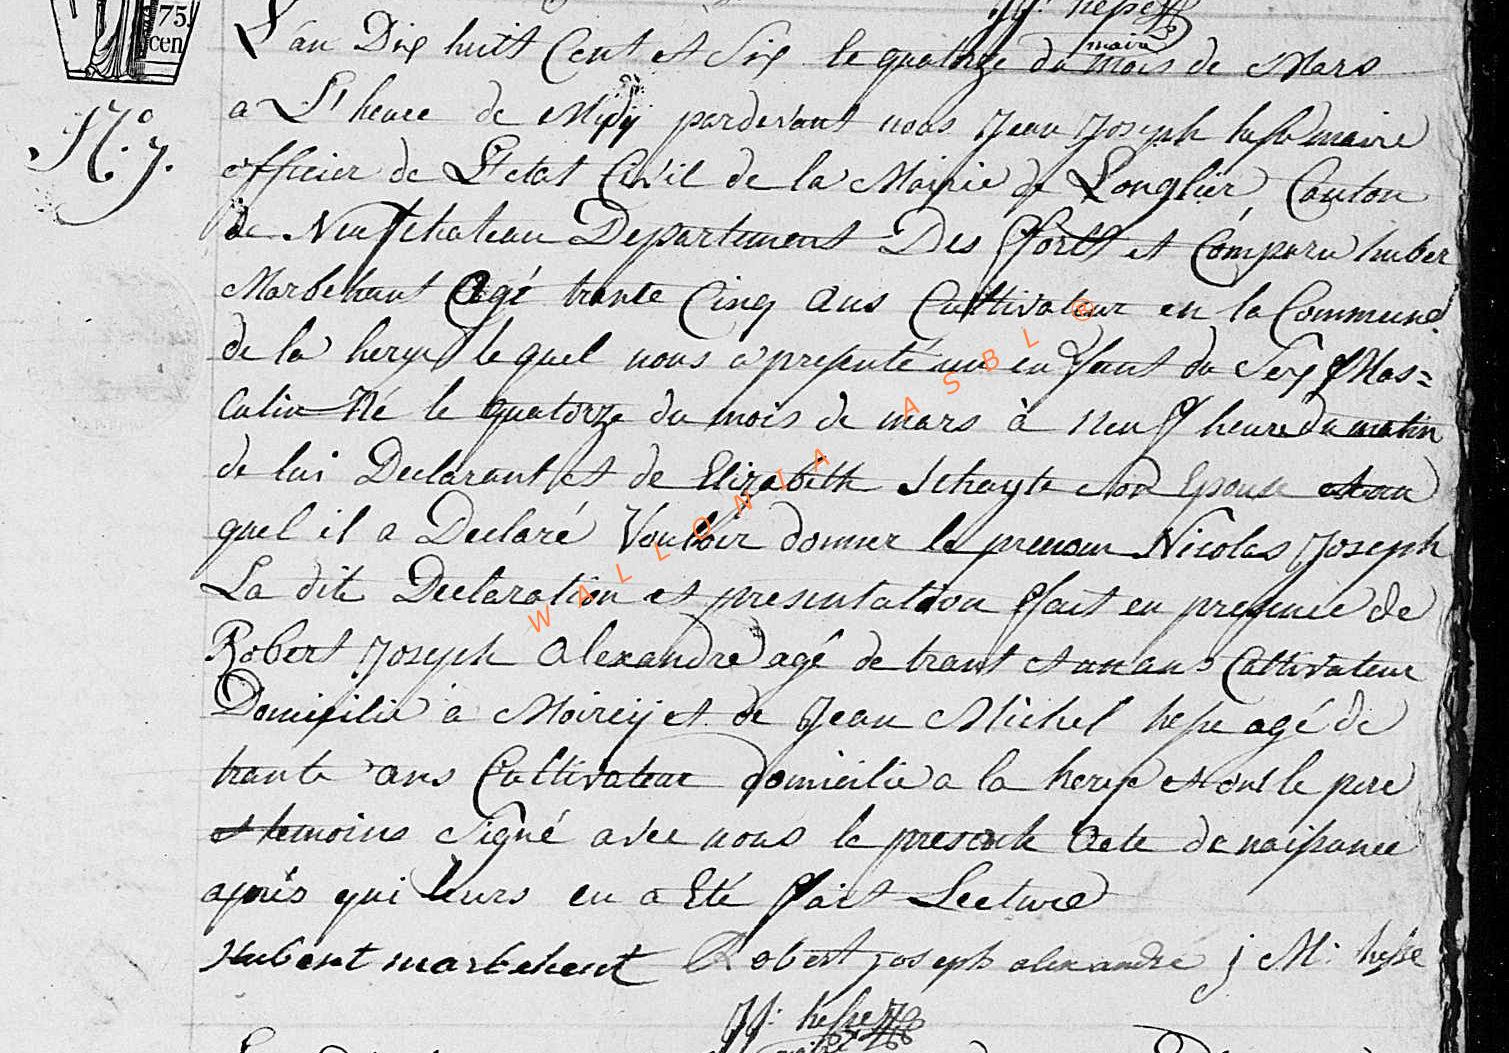 75.
cen
JJ: hesse
maire
N.° 7.
L'an Dix huitt Cent et Six le quatorze du mois de Mars
a L'heure de Midy pardevant nous Jean Joseph hesse maire
officier de L'Etat Civil de la Mairie de Longlier, Canton
de Neufchateau Departement Des Forets et Comparu huber
Marbehant Agé trante Cinq Ans Cultivateur en la Commune
de la herye le quel nous a presenté un enfant du Sex Mas=
Culin Né le quatorze du mois de mars à neuf heure du matin
de lui Declarant et de Elizabéth Schayte Son Epouse et au
quel il a Declaré Vouloir donner le prenom Nicolas Joseph
La dite Declaration et presentation fait en presence de
Robert Joseph Alexandre agé de trant et un ans Cultivateur
Domicilié à Moircy et de Jean Michel hesse agé de
trante ans Cultivateur domicilié a la herye et ont le pere
et temoins Signé avec nous le present Acte de naissance
après qui leurs en a Eté fait Lecture
Hubert marbehent Robert joseph alexandre j M: hesse
JJ: hesse
WALLONIA ASBL ®